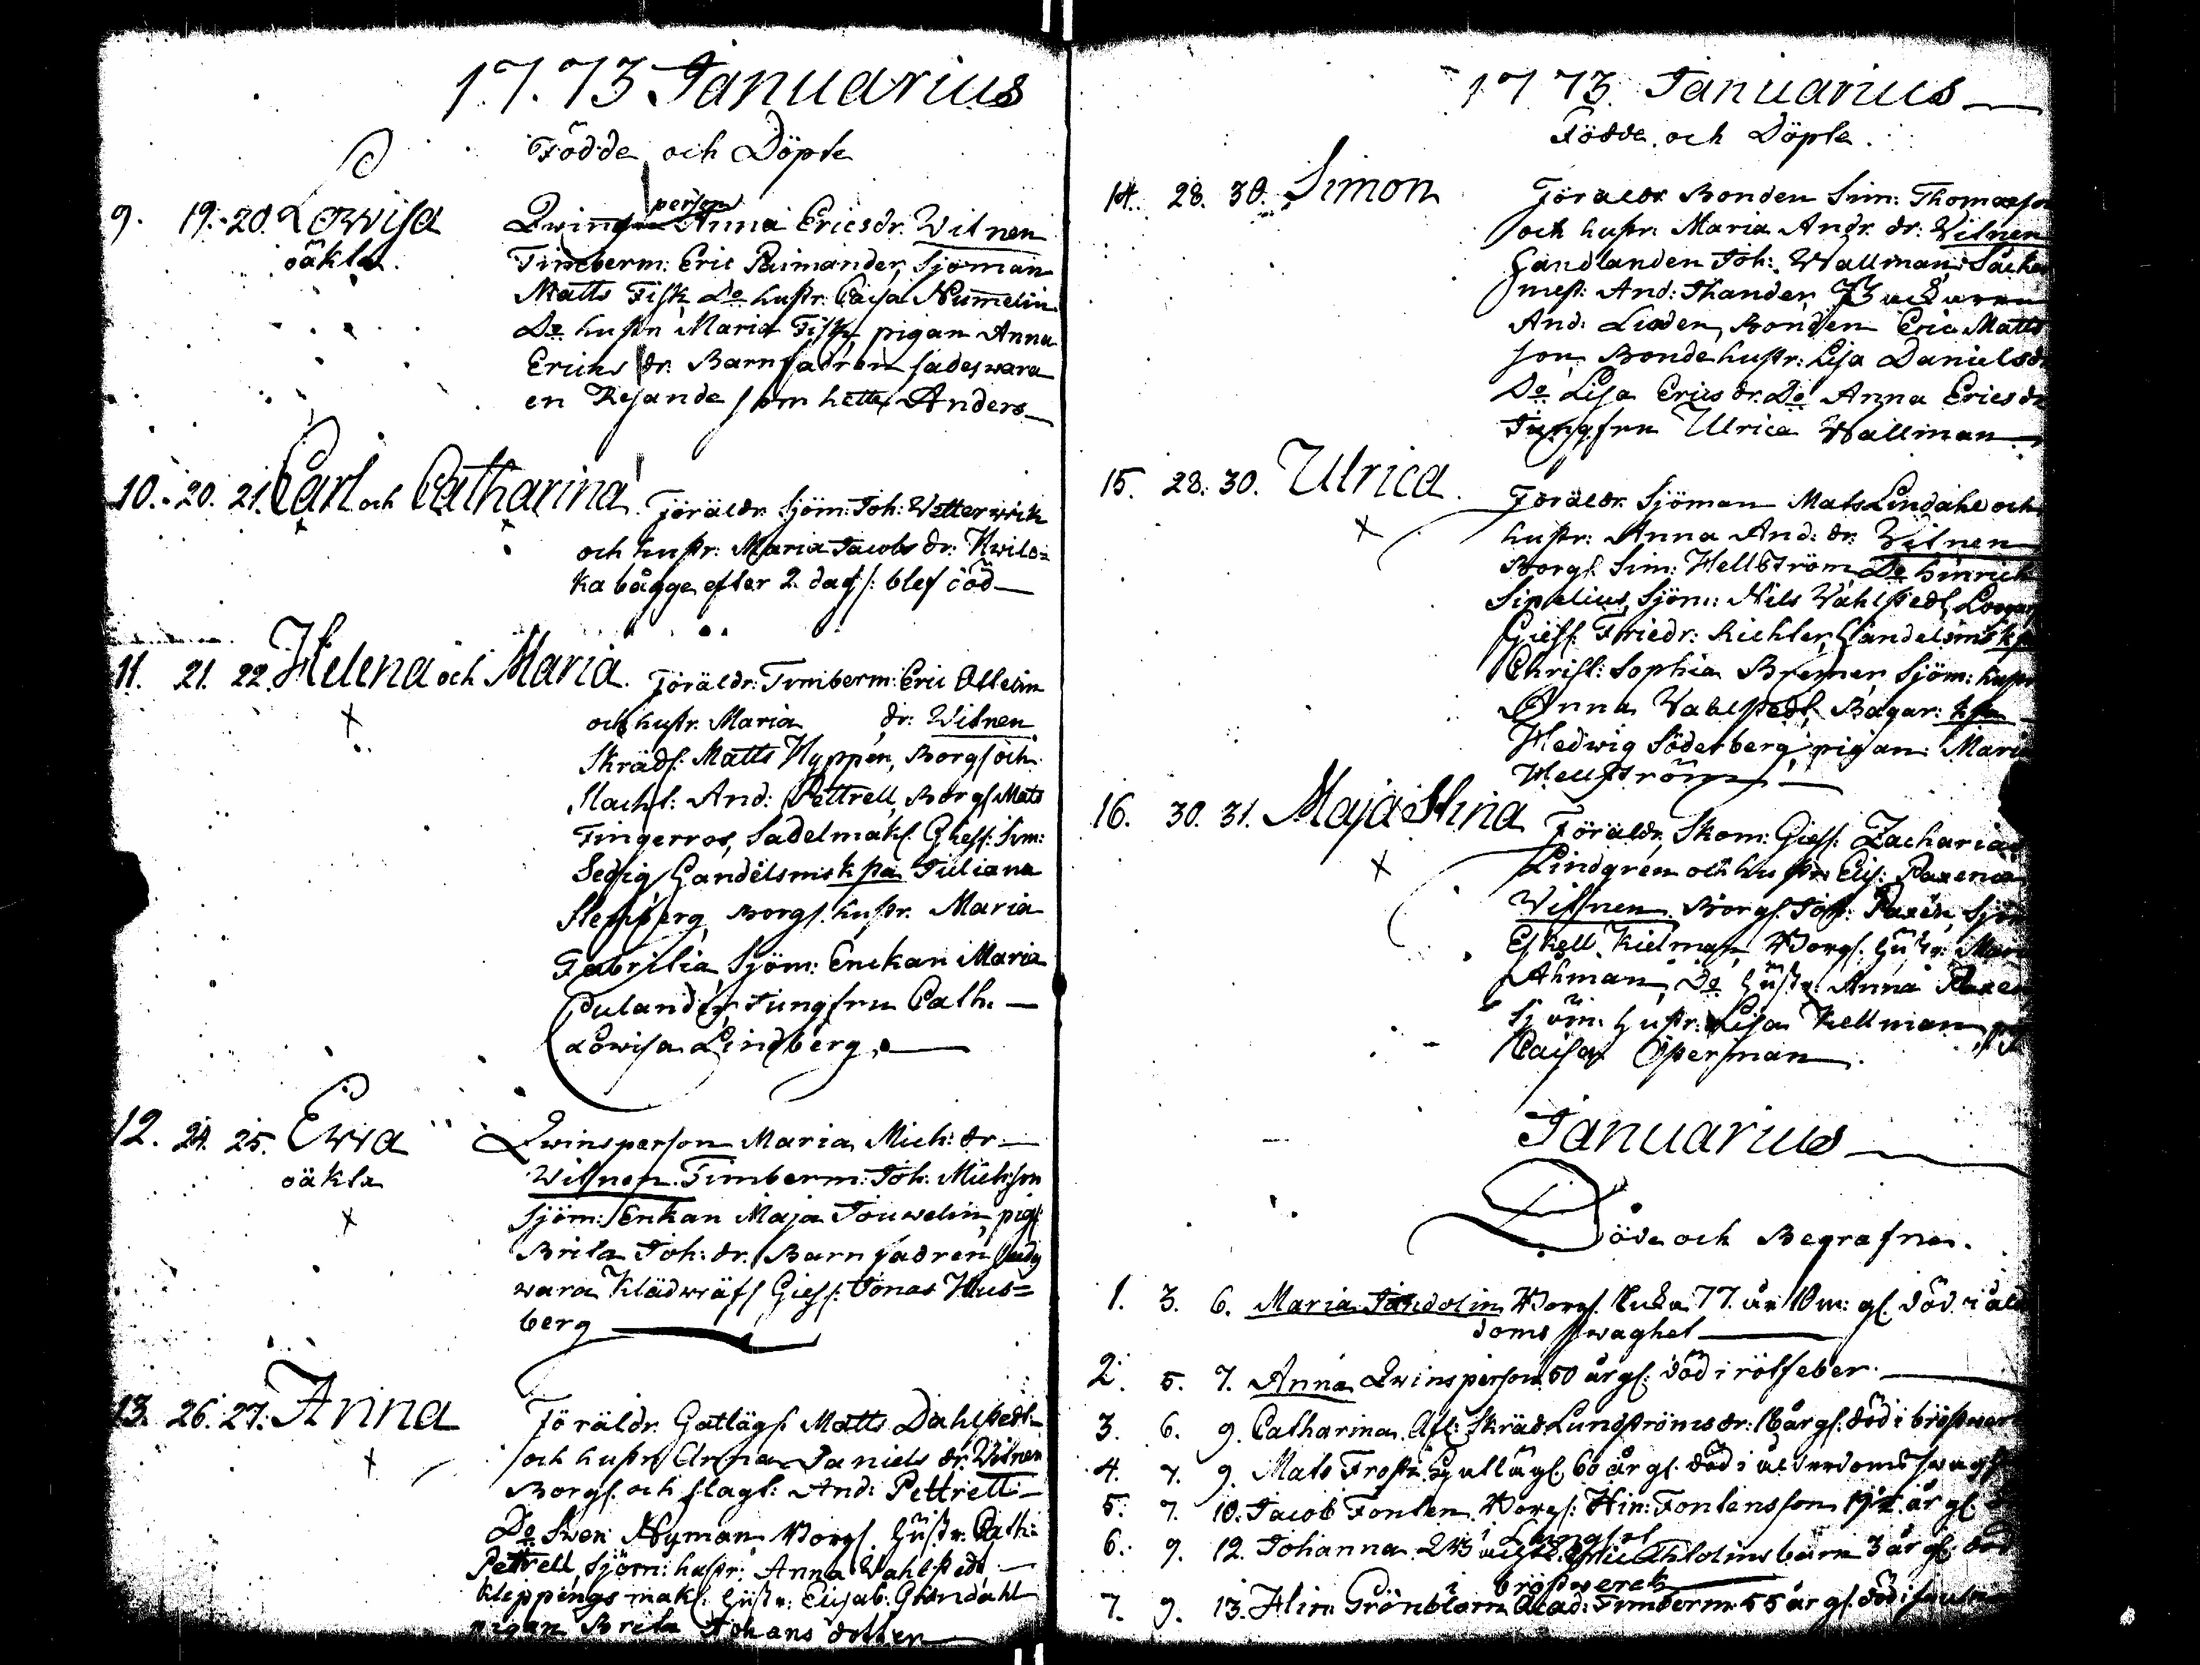 17.73 Januarius
Födde och Döpte
9. 19. 20. Lowisa
oäkta
Qwins person Anna Ericsdr. Witnen
Timberm: Eric Raimander, Sjöman
Matts Fisk Do hustr: Caisa Numelin
Do hustr Maria Fisk, pigan Anna
Erichs dr. Barnfadren sades wara
en Resande som hette Anders
10. 20. 21. Carl och Catharina
Föräldr. Sjöm: Joh: Wetterwik
och hustr: Maria Jacobs dr:
ka bägge efter 2 dag: blef död
11. 21. 22. Helena och Maria
Föräldr: Timberm: Eric
och hustr. Maria dr: Witnen
Skräds: Matts Hyppén, Borgs och
Slacht: And: Pettrell, Borgs Mats
Fingerros, Sadelmaks. Giess: Sim:
Handelsms k pa Juliana
Borgs. hustr. Maria
Sjöm: Enckan Maria
Pulander, Jungfru Cath:
Lowisa Lindberg
12. 24. 25. Ewa
oäkta
Qwinsperson Maria Mich: dr
Witnen. Timberm: Joh: Michson
Sjöm: Enkan Maja Jouwelin, pig:
Brita Joh: dr. Barnfadren sades
wara Klädwäfs Giess: Jonas Hus=
berg
13. 26. 27. Anna
Föräldr. Gatlägs: Matts Dahlstedt
och hustr Anna Daniels dr. Witnen
Borgs. och slagt: And: Pettrell
Do Swen Nyman, Borgs. Hustr. Cath:
Pettrell, Sjöm: hustr: Anna Wahlstedt
Kleppings mak: Hustr: Elisab:
pigan Brita Johans dotter
1773. Januarius
Födde och Döpte
14. 28. 30. Simon
Föräldr Bonden Sim: Thomasson
och hustr: Maria Andr. dr: Witnen
Handlanden Joh: Wallman, Såcker
mest: And: Thander,
And: Linden, Bonden Eric Matts
son Bondehustr: Lisa Danielsdr
Do Lisa Erics dr. Do Anna Erics dr
Jungfru Ulrica Wallman
15. 28. 30. Ulrica
Föräldr. Sjöman Mats Lindahl och
hustr: Anna And: dr. Witnen
Borgs. Sim: Hellström Do Hinrich
Sipelius, Sjöm: Nils Wahlstedt,
Giess. Friedr: Richter, Handelsms k pa
Christ: Sophia Bremer Sjöm: hustr
Anna Wahlstedt, Bagar: k pa
Hedwig Söderberg, pigan: Maria
Hellström
16. 30. 31. Maja Stina
Föräldr, Skom: Giess. Zacharias
Lindgren och hustr Elis: Paxenia
Witnen. Borgs. Joh: Paxén, Sjöm
Eskell Kielman, Borgs: Hustr: Maria
Åhman, Do Hustr: Anna Paxen
Sjöm: Hustr: Lisa Kellman,
Caisa Operman
Januarius
Döde och Begrafne.
1. 3. 6. Maria Tandolin Borgs. Encka 77. år 10 m: gl. död i ål
doms swaghet
2. 5. 7. Anna Qwinsperson 50 år gl: död i rötfeber
3. 6. 9. Catharina Afl: Skräd. Lundströms dr: 16 år gl. död i bröstwerk
4. 7. 9. Mats Frost. Gatlägs. 60 år gl. död i ålderdoms swagh
5. 7. 10. Jacob Fonten Borgs: Hin: Fontens son 19½ år gl.
6. 9. 12. Johanna Thlolins barn 3 år gl. död
i Lungsot
i bröstwerck
7. 9. 13. Hin: Grönblom Acad: Timberm. 55 år gl. död i